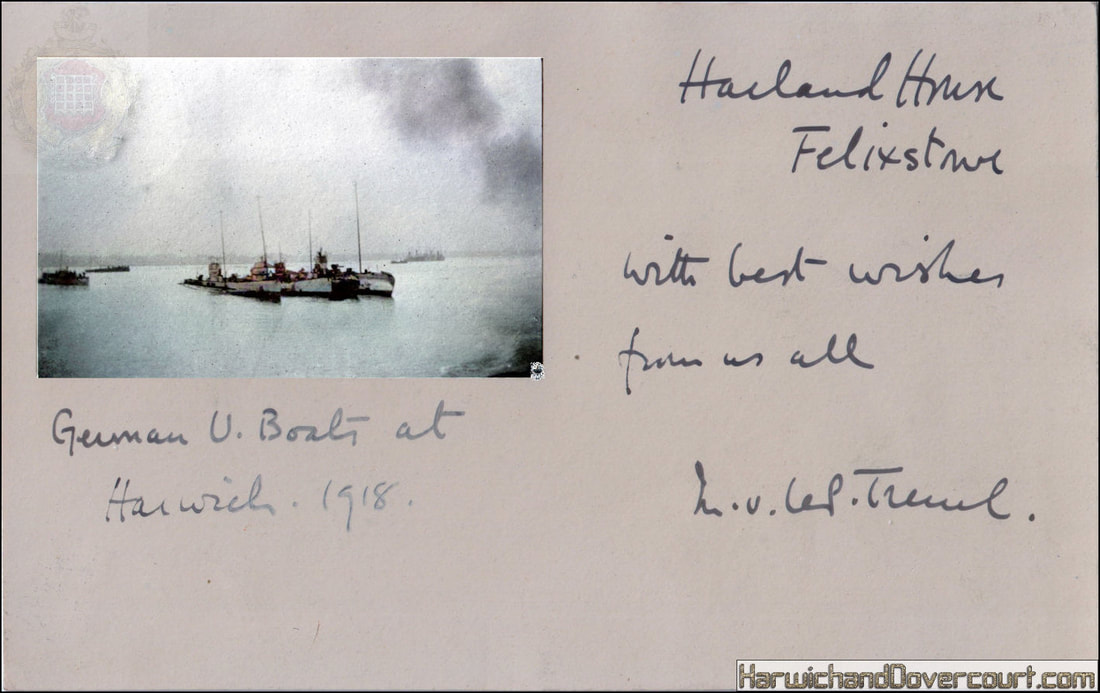 Harland House
Felixstowe
with best wishes
from us all
German U. Boats at
Harwich. 1918.
HarwichandDovercourt.com